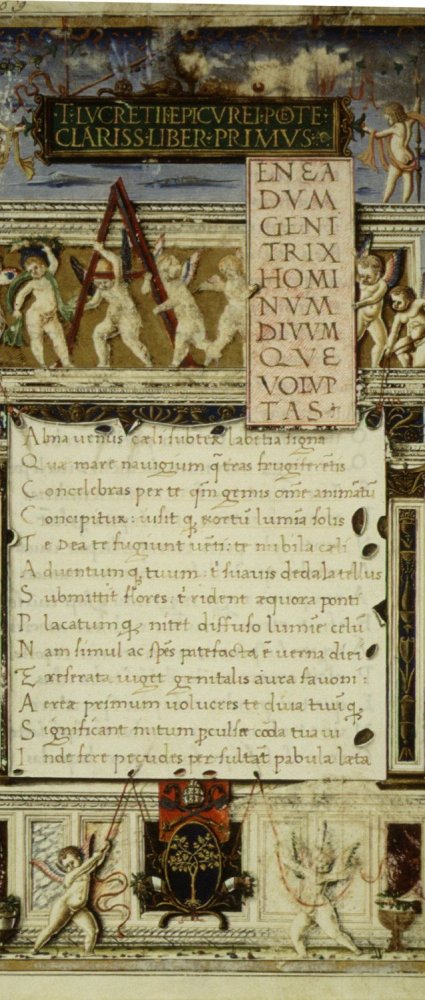 T·LVCRETII·EPICVREI·POETE·
CLARISS·LIBER·PRIMVS·
A
ENEA
DVM
GENI
TRIX
HOMI
NVM
DIVVM
QVE
VOLVP
TAS
Alma venus cæli subter labētia signa
Quæ mare navigium q̄ terras frugiferētis
Concelebras per te qm̄ genus omē animātū
Concipitur: visit q; exortū lumīa solis
Te Dea te fugiunt vēti: te nubila cæli
Adventum q; tuum: t̄ suavis dedala tellus
Submittit flores: t̄ rident æquora ponti
Placatum q; nitet diffuso lumīe celū
Nam simul ac spēs patefacta ē verna diei
Et reserata viget genitalis aura favoni:
Aereæ primum volucres te diva tuū q;
Significant initum perculsæ corda tua vi
Inde fere pecudes per sultāt pabula læta